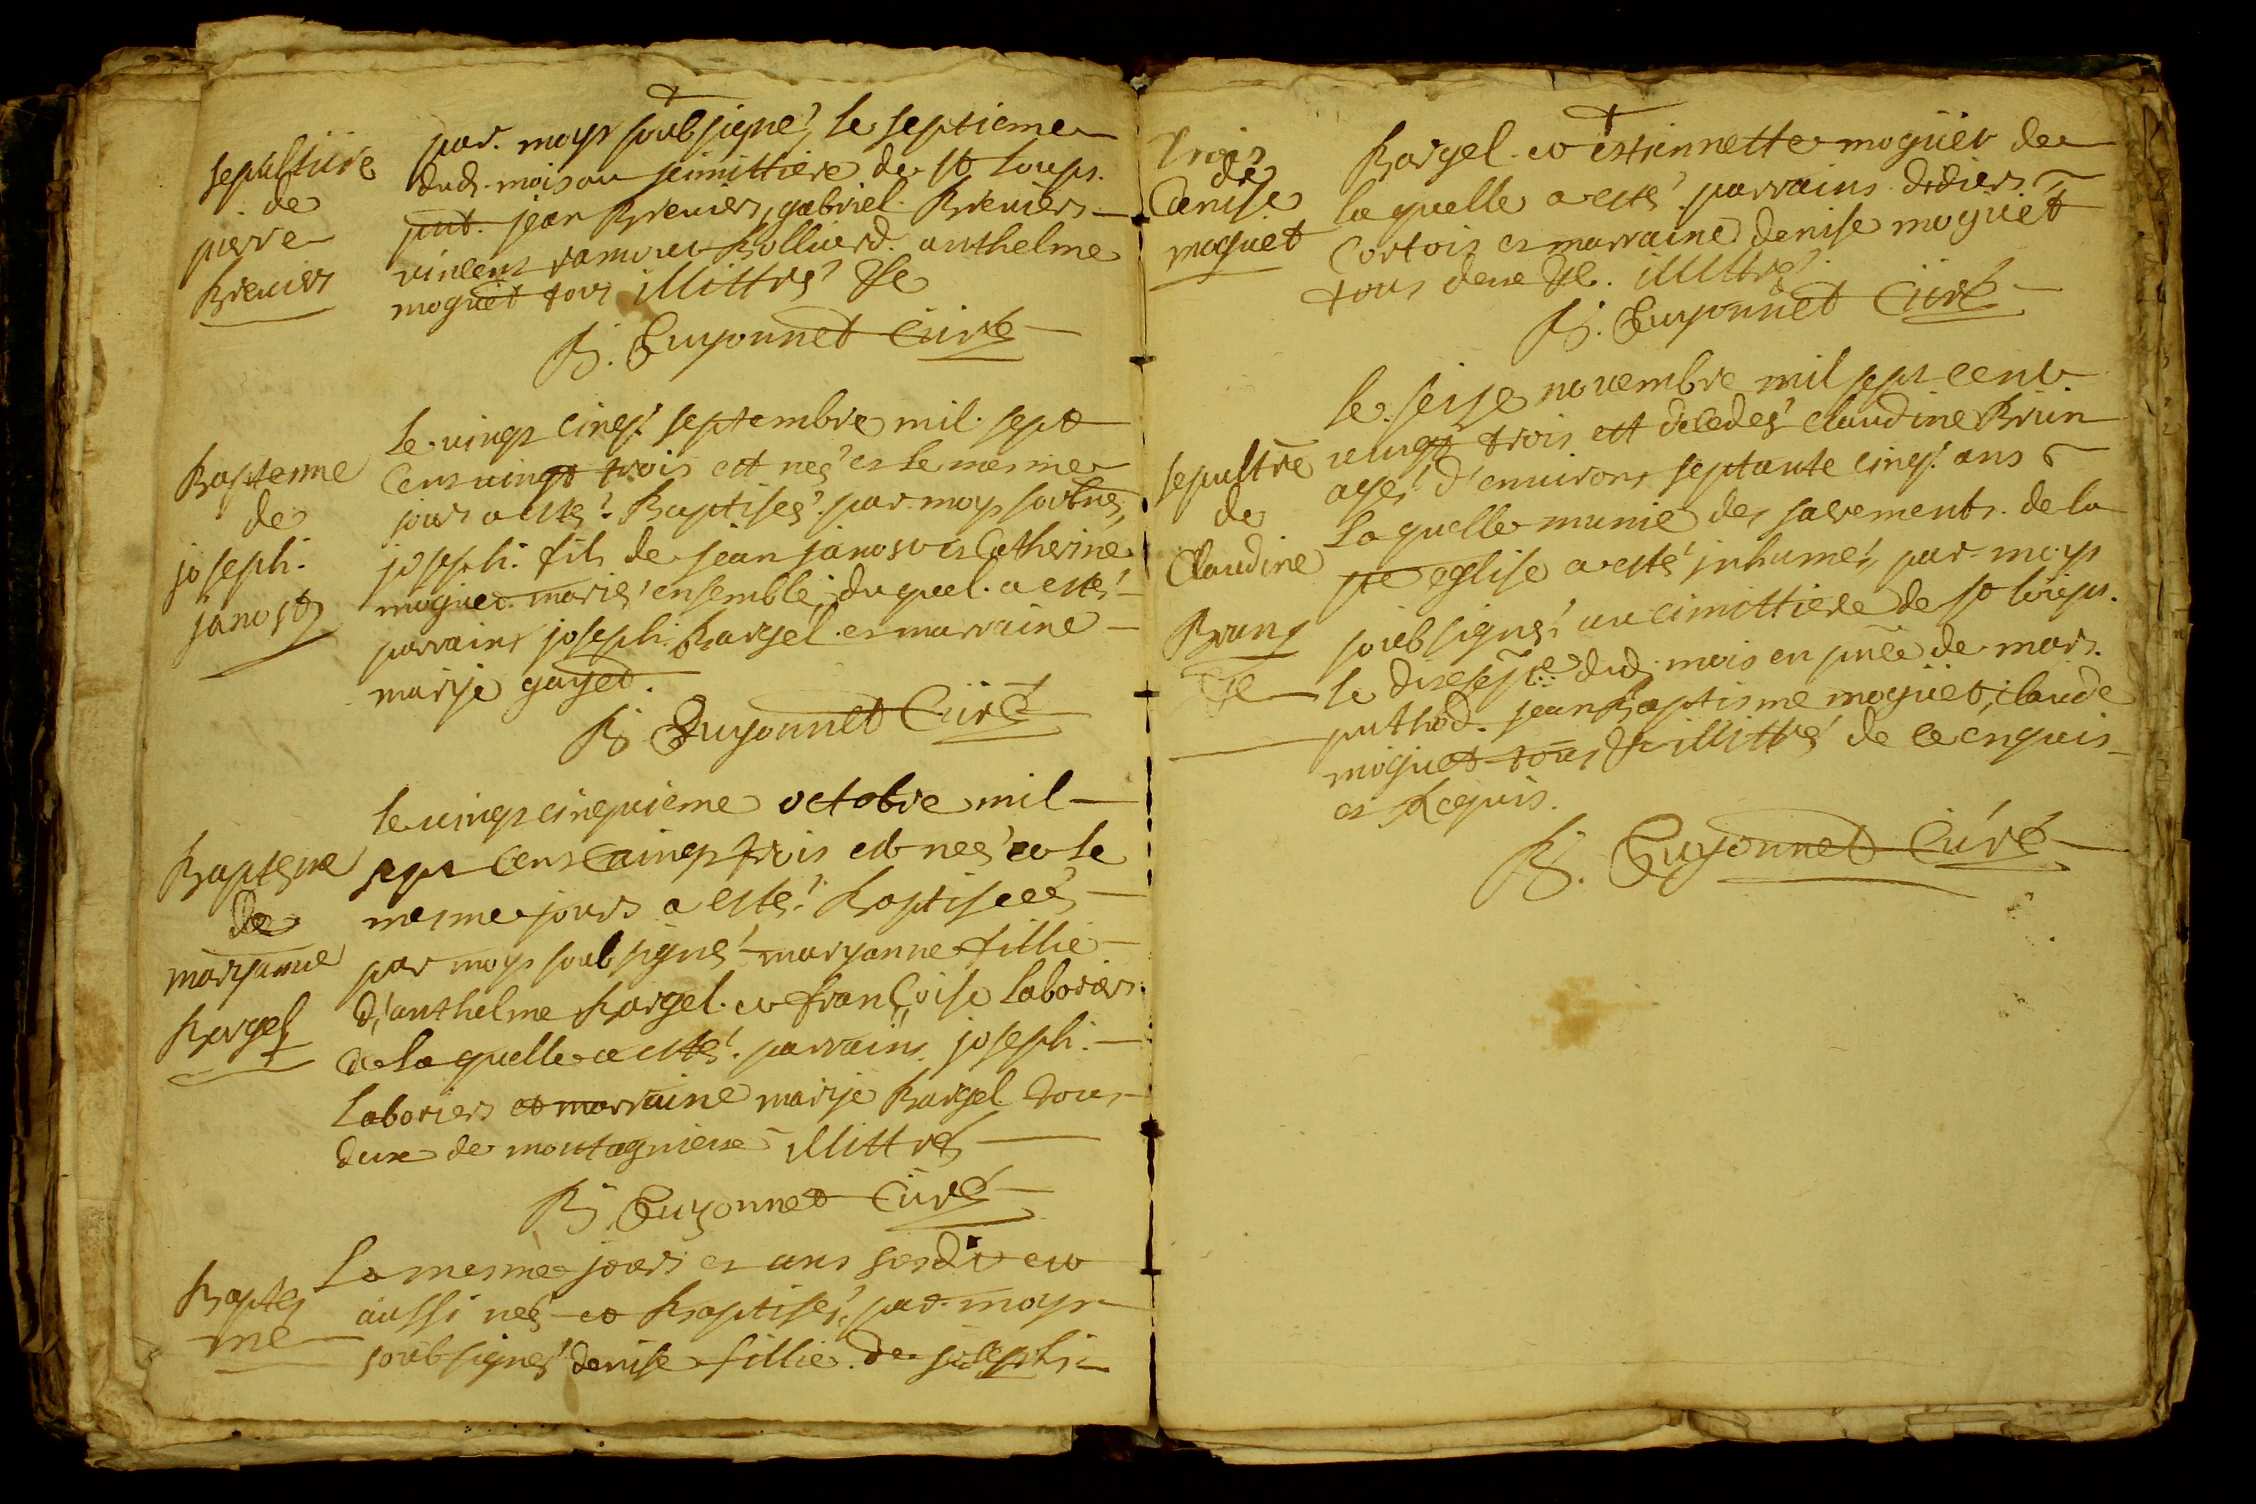 sepulture
de
pierre
Breniers
par moys soubsigné, le septieme
dud. mois au simittiere de st loups.
pnt. jean Breniers, gabriel Breniers
vincent ramour Bolliard. anthelme
moguet tous illittrés
B. Guyonnet Curé
Bapteme
de
joseph.
janost
le vingt cinq. septembre mil sept
cens vingt trois est nes et le mesme
jours a estés Baptises par moys soubnes
joseph. fils de jean janost et Catherine
moguet mariés ensemble, duquel a estés
parrains joseph. Bargel et marraine
marije gayet.
B. Guyonnet Curé
Bapteme
de
maryanne
Bargel
le vingt cinquieme octobre mil
sept cens vingt trois est nes et le
mesme jours a estés Baptisees
par moys soubsignés maryanne fillie
d'anthelme Bargel et françoise laboriers
de laquelle a estés parrains joseph.
laboriers et marraine marije Bargel tous
deux de montagnieux illittrés
B. Guyonnet Curé
Baptes
me
La mesme jours et ans susdit est
aussi nés et Baptisés, par moys
soubsignés denise fillie de joseph
trois
de
denise
moguet
Bargel et estiennette moguet de
laquelle a estés parrains didiers
Cortois et marraine denise moguet
tous deux illittrés
B. Guyonnet Curé
sepultre
de
Claudine
Brun
le seise novembre mil sept cent
vingt trois est decedes claudine Brun
agés d'environs septante cinq ans
Laquelle munie des sacrements de la
ste eglise a estés inhumés, par moys
soubsignés, au cimittiere de st loups.
le disesept dud. mois en pnce de marc
puthod. jean Baptisme moguet, claude
moguet tous illittrés de ce enquis
et Requis.
B. Guyonnet Curé